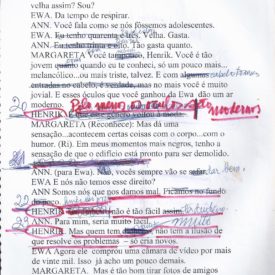 velha assim? Sou?
EWA. Da tempo de respirar.
ANN. Você fala como se nós fôssemos adolescentes.
EWA. Eu tenho quarenta e três. Velha. Gasta.
ANN. Eu tenho trinta e oito. Tão gasta quanto.
MARGARETA Você tampouco, Henrik. Você é tão
jovem quanto quando eu te conheci, só um pouco mais...
melancólico...ou mais triste, talvez. E com algumas
entradas no cabelo, é verdade, mas no mais você é muito
jovial. E esses óculos que você ganhou da Ewa dão um ar
moderno. Pelo menos os óculos são modernos
HENRIK. É que esse gênero voltou à moda
MARGARETA (Reconhece): Mas dá uma
sensação...acontecem certas coisas com o corpo...com o
humor. (Ri). Em meus momentos mais negros, tenho a
sensação de que o edifício está pronto para ser demolido.
ANN. (para Ewa). Não, vocês sempre vão se safar.
EWA E nós não temos esse direito?
ANN Somos nós que nos damos mal. Ficamos no fundo
do poço.
HENRIK não é tão fácil assim
ANN. Para mim, seria muito fácil.
HENRIK. Mas quem tem não tem a ilusão de
que resolve os problemas – só cria novos.
EWA Agora ele comprou uma câmera de vídeo por mais
de vinte mil. Isso já acho um pouco demais.
MARGARETA. Mas é tão bom tirar fotos de amigos